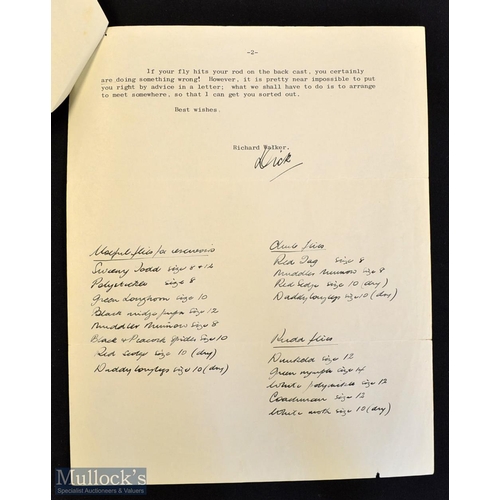 -2-
If your fly hits your rod on the back cast, you certainly
are doing something wrong! However, it is pretty near impossible to put
you right by advice in a letter; what we shall have to do is to arrange
to meet somewhere, so that I can get you sorted out.
Best wishes.
Richard Walker.
Dick
Useful flies for reservoirs
Sweeny Todd size 8 & 12
Polystickle size 8
Green Longhorn size 10
Black midge pupa size 12
Muddler Minnow size 8
Black & Peacock Spider size 10
Red Sedge size 10 (dry)
Daddy longlegs size 10 (dry)
Chub flies
Red Tag size 8
Muddler Minnow size 8
Red Sedge size 10 (dry)
Daddy longlegs size 10 (dry)
Rudd flies
Dunkeld size 12
Green nymph size 14
White size 12
Coachman size 12
White moth size 10 (dry)
Mullock's
Specialist Auctioneers & Valuers